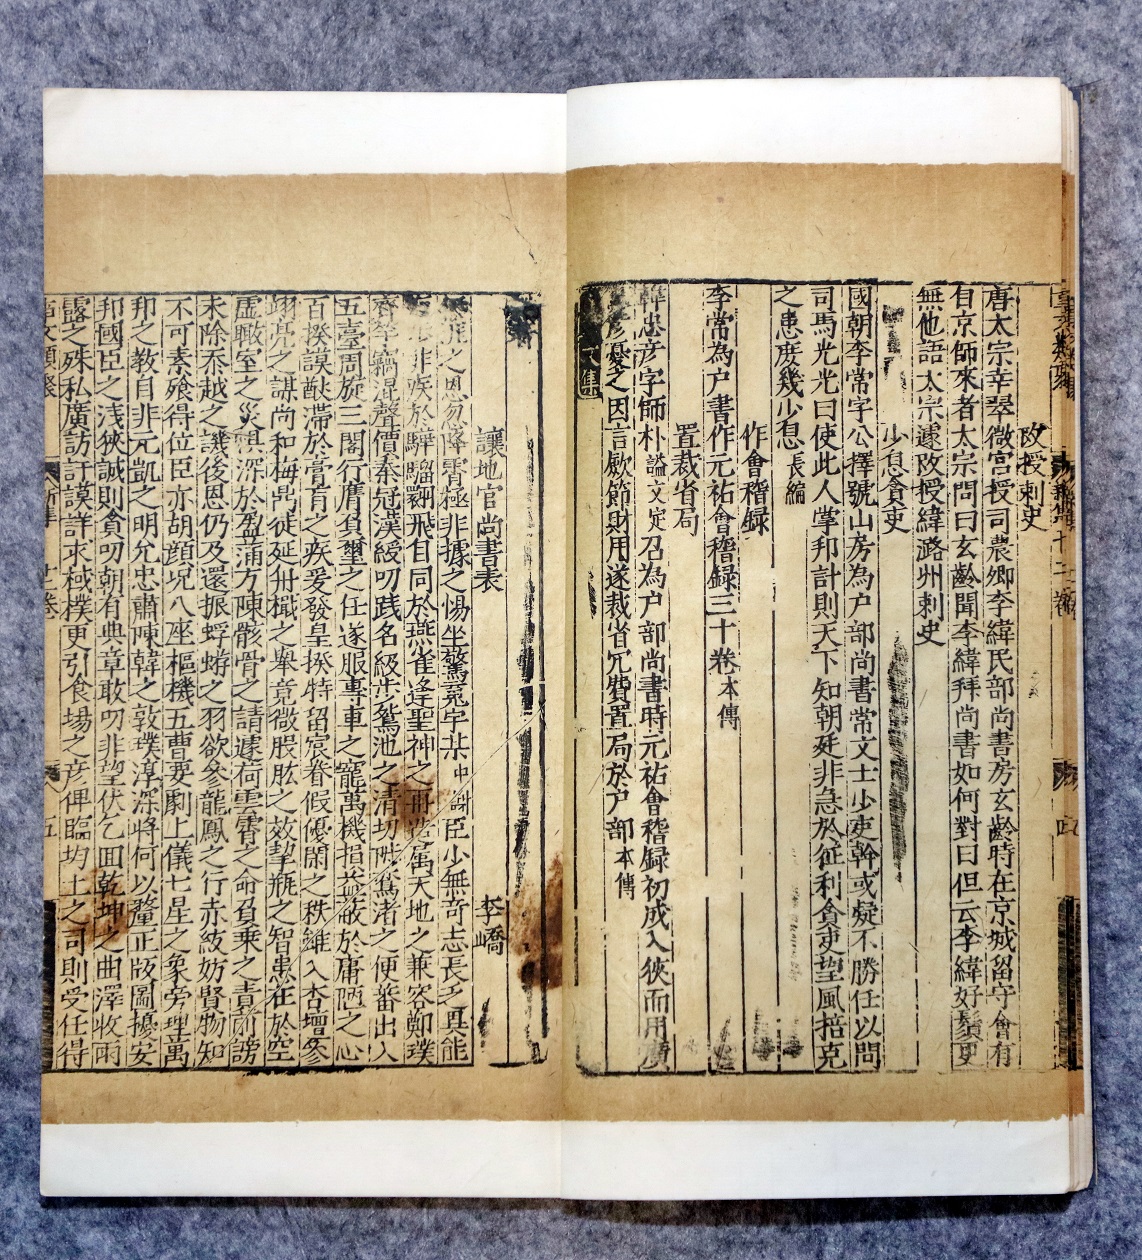 改授刺史
唐太宗幸翠微宮授司農卿李緯民部尚書房玄齡時在京城留守會有
自京師來者太宗問曰玄齡聞李緯拜尚書如何對曰但云李緯好鬚更
無他語太宗遽改授緯潞州刺史
少息貪吏
國朝李常字公擇號山房為户部尚書常文士少吏幹或疑不勝任以問
司馬光光曰使此人掌邦計則天下知朝廷非急於征利貪吏望風掊克
之患庶幾少息長編
作會稽録
李常為户書作元祐會稽録三十卷本傳
置裁省局
韓忠彦字師朴謚文定召為户部尚書時元祐會稽録初成入狹而用廣
彦憂之因言歛節財用遂裁省冗費置局於户部本傳
文集
讓地官尚書表 李嶠
之恩忽降霄極非據之惕坐驚寃宇某中謝臣少無奇志長乏具能
非疾於驊騮翾飛自同於燕雀逢聖神之冊屬天地之兼容鄭璞
齊竽竊混聲價秦冠漢綬叨踐名級步鴛池之清切陟鴛渚之便蕃出入
五臺周旋三閣行膺負璽之任遂服專車之寵萬機損益蔽於庸陋之心
百揆謨猷滯於膏肓之疾爰發皇揆特留宸眷假優閑之秩雖入杏壇參
翊亮之謀尚和梅鼎徒延舟檝之舉竟微股肱之效挈瓶之智患在於空
虛瞰室之災惧深於盈滿方陳骸骨之請遽荷雲霄之命負乗之責前謗
未除忝越之譏後恩仍及還振蜉蝣之羽欲參龍鳳之行赤紱妨賢物知
不可素飱得位臣亦胡顔况八座樞機五曹要劇上儀七星之象旁理萬
邦之教自非元凱之明允忠肅陳韓之敦璞淳深將何以釐正版圖擾安
邦國臣之淺狹誠則貪叨朝有典章敢叨非望伏乞囬乾坤之曲澤收雨
露之殊私廣訪訏謨詳求棫樸更引食場之彦俾臨均土之司則受任得